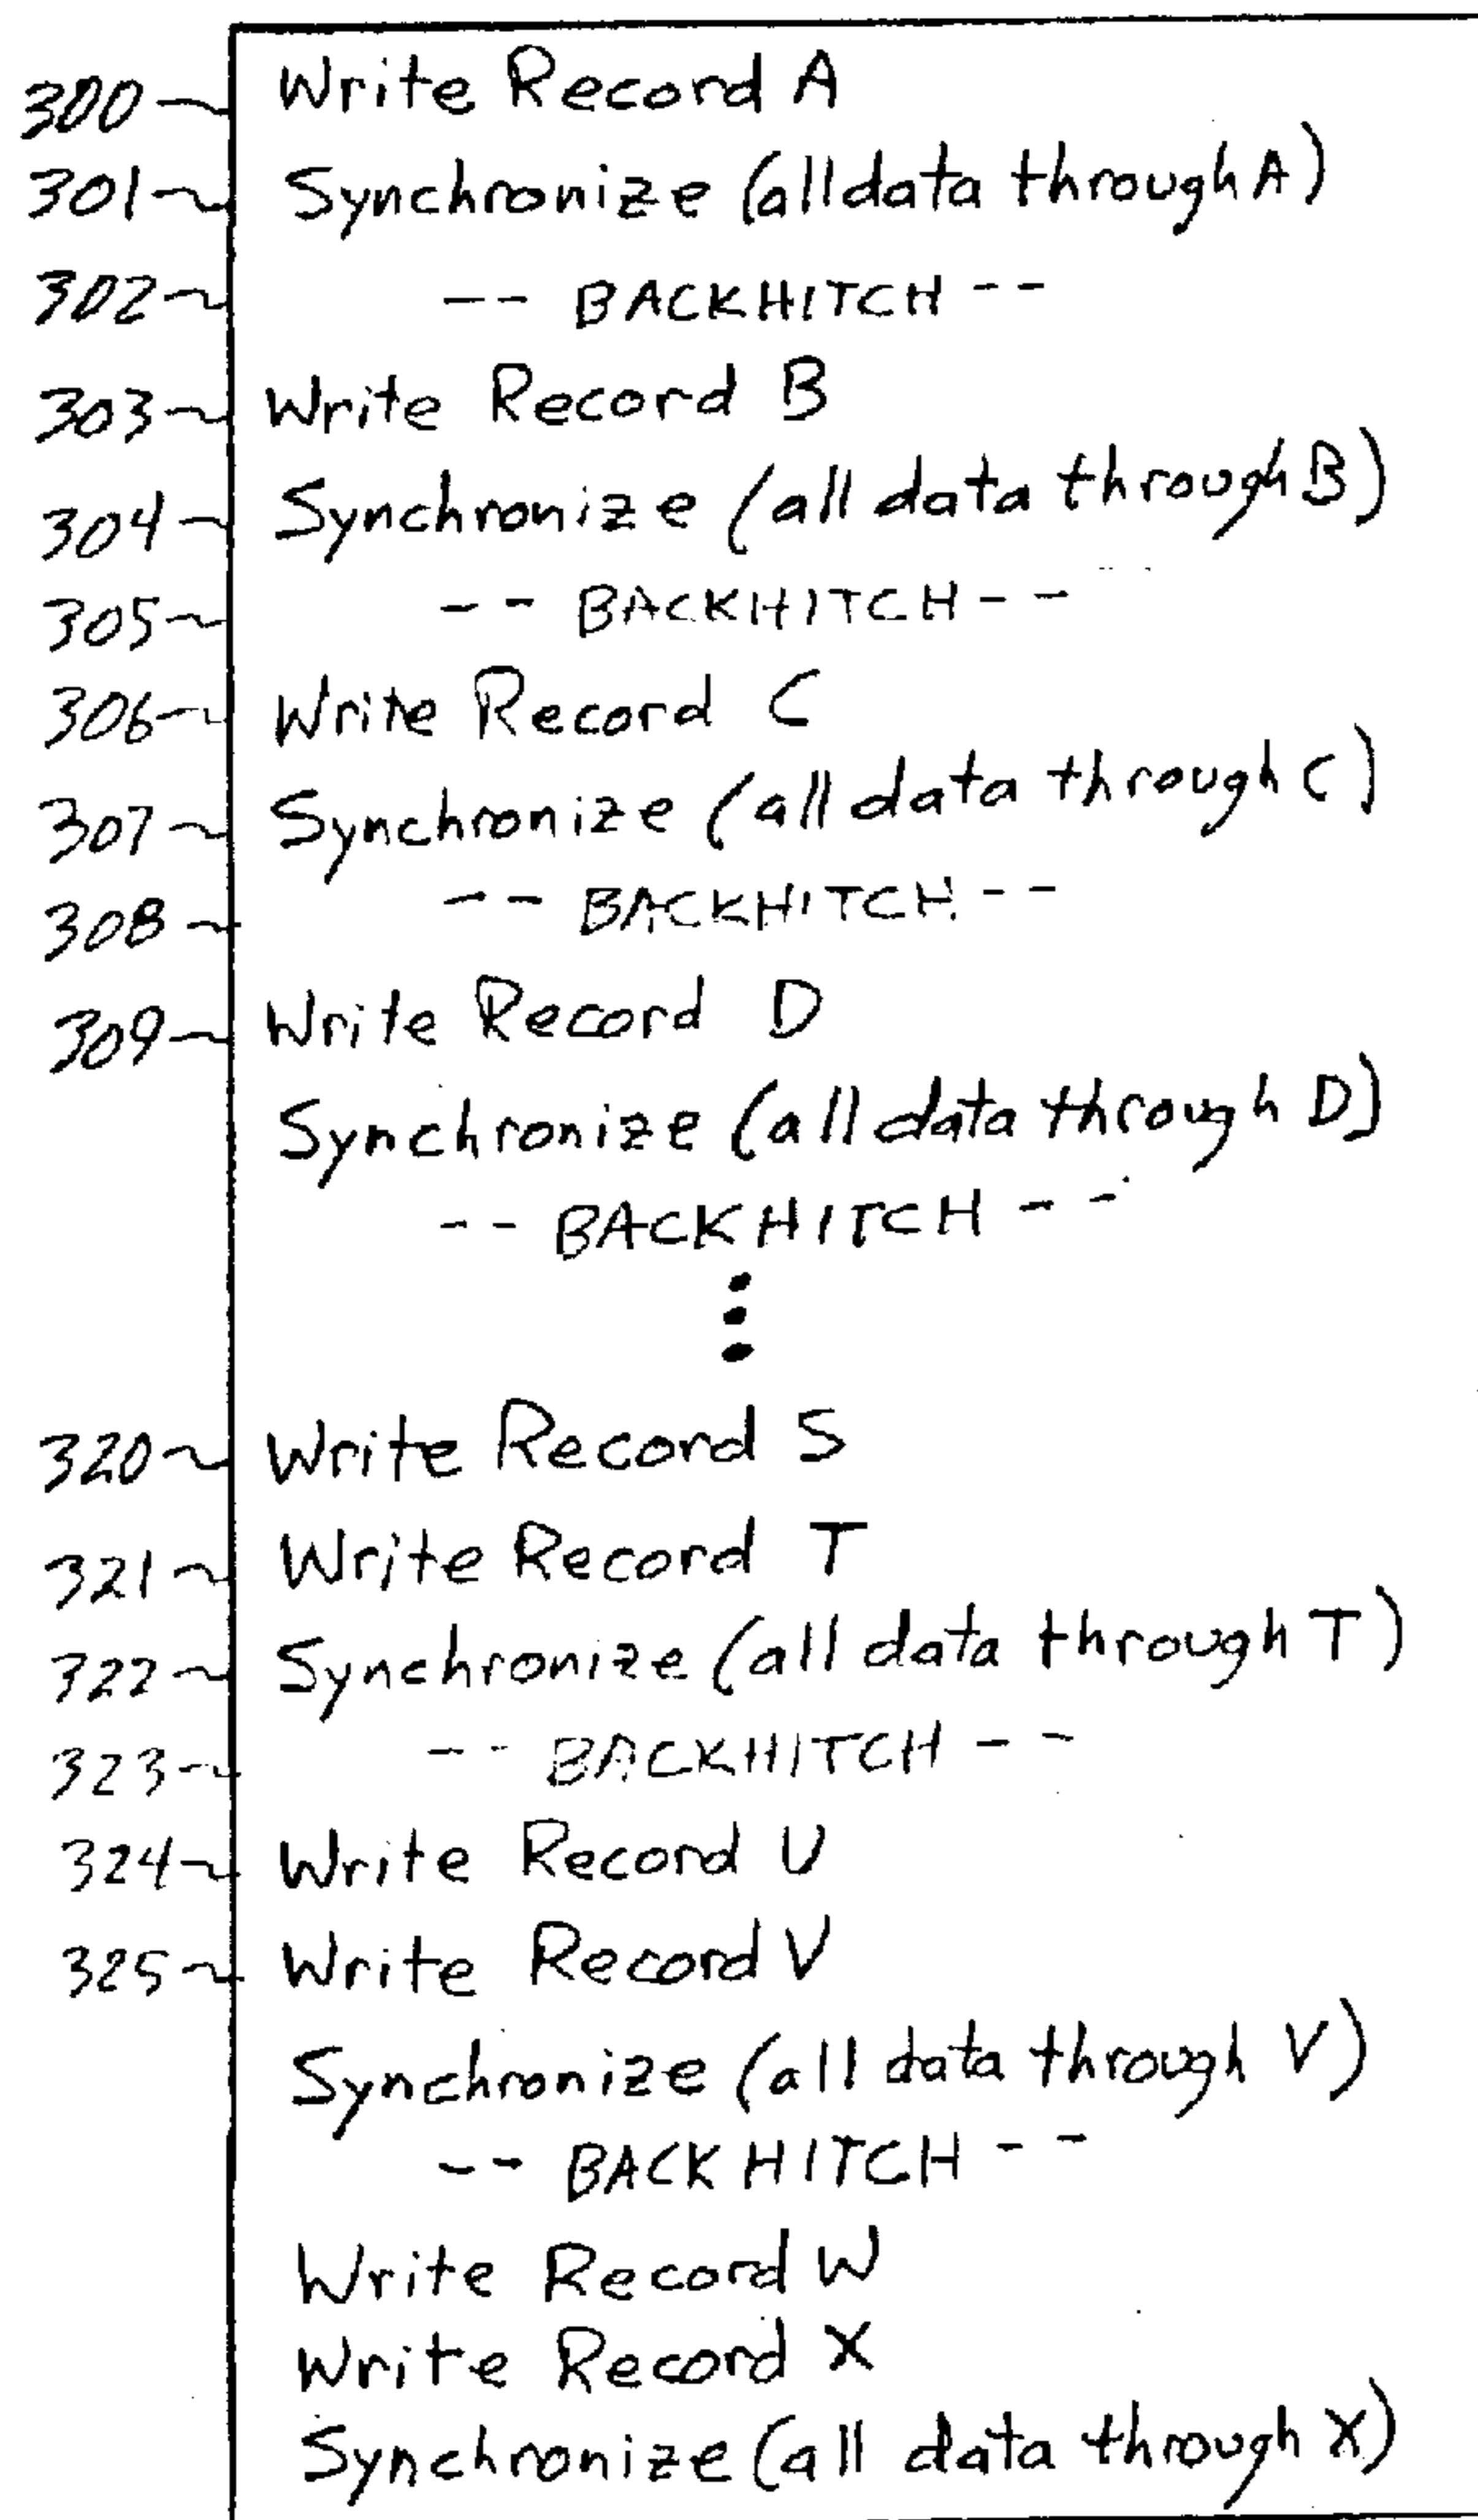 300 Write Record A
301 Synchronize (all data through A)
302 -- BACKHITCH --
303 Write Record B
304 Synchronize (all data through B)
305 -- BACKHITCH --
306 Write Record C
307 Synchronize (all data through C)
308 -- BACKHITCH --
309 Write Record D
Synchronize (all data through D)
-- BACKHITCH --
320 Write Record S
321 Write Record T
322 Synchronize (all data through T)
323 -- BACKHITCH --
324 Write Record U
325 Write Record V
Synchronize (all data through V)
-- BACKHITCH --
Write Record W
Write Record X
Synchronize (all data through X)